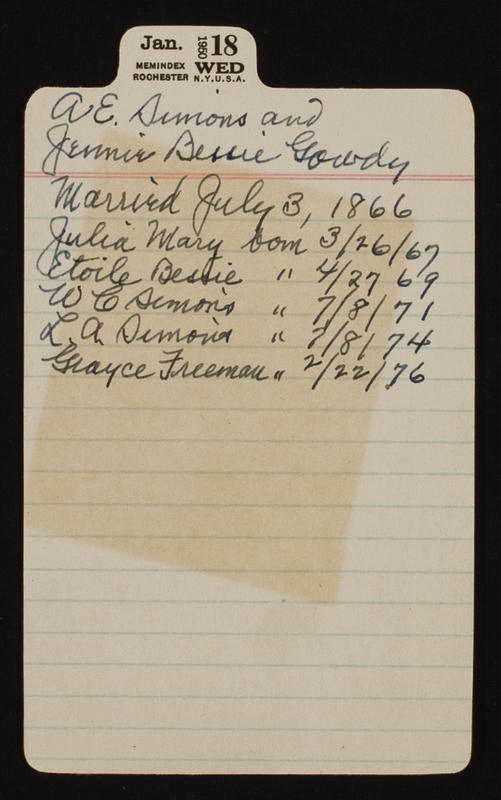 Jan. 1950 18
MEMINDEX WED
ROCHESTER N.Y.U.S.A.
A E. Simons and
Jennie Bessie Gowdy
Married July 3, 1866
Julia Mary born 3/26/67
Etoile Bessie " 4/27 69
W C Simons " 7/8/71
L. A. Simons " 7/8/74
Grayce Freeman " 2/22/76